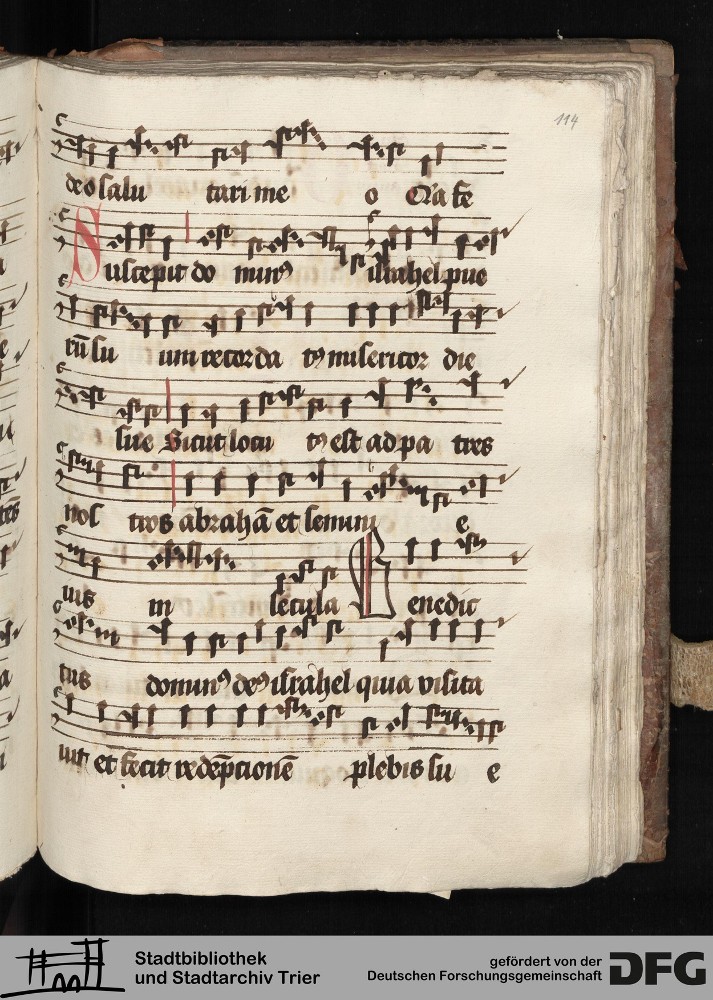 114
deo salu tari me o Q̄ia fe
Suscepit do minꝰ israhel pue
rū su um recorda tꝰ misericor die
sue Sicut locu tꝰ est ad pa tres
nos tros abrahā et semini e
ius in secula Benedic
tus dominꝰ deꝰ israhel quia visita
uit et fecit redēpcionē plebis su e
Stadtbibliothek
und Stadtarchiv Trier
gefördert von der
Deutschen Forschungsgemeinschaft
DFG